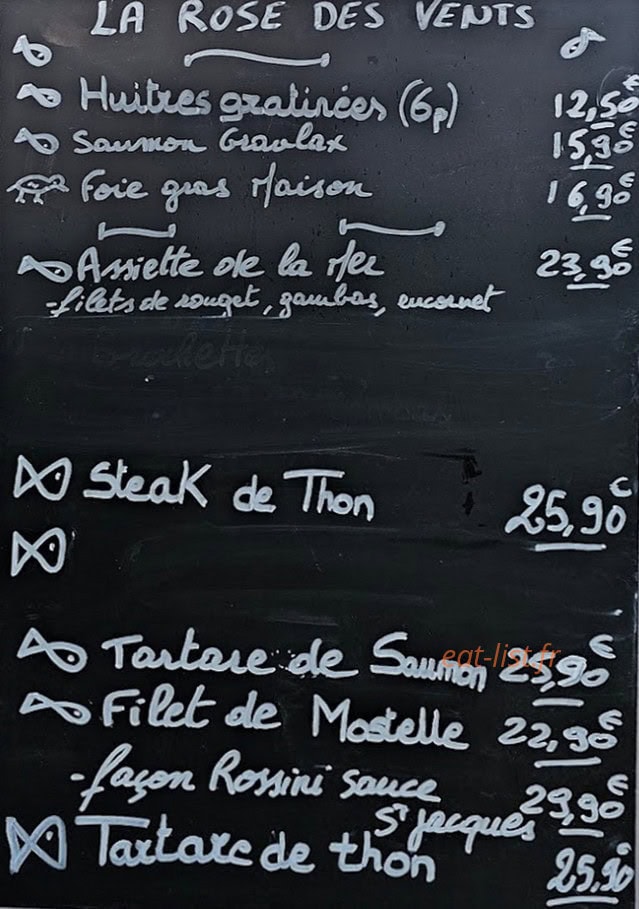 LA ROSE DES VENTS
Huitres gratinées (6p) 12,50€
Saumon Gravlax 15,90€
Foie gras Maison 16,90€
Assiette de la Mer 23,90€
-filets de rouget, gambas, encornet
Steak de Thon 25,90€
Tartare de Saumon 23,90€
eat-list.fr
Filet de Mostelle 22,90€
-façon Rossini sauce 29,90€
St jacques
Tartare de thon 25,90€